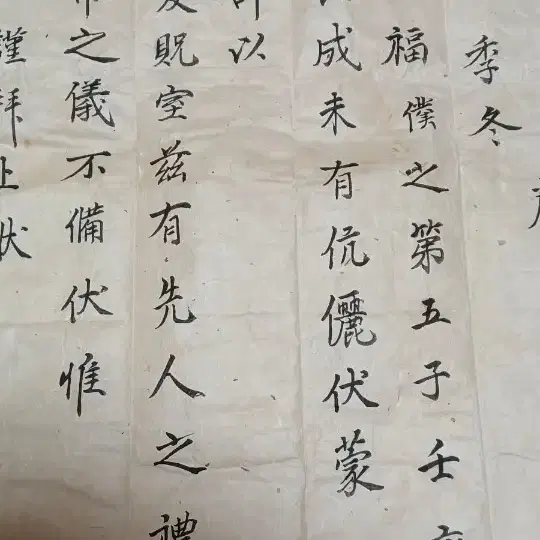 季冬
福僕之第五子壬
成未有伉儷伏蒙
以
貺室茲有先人之禮
之儀不備伏惟
謹拜上狀